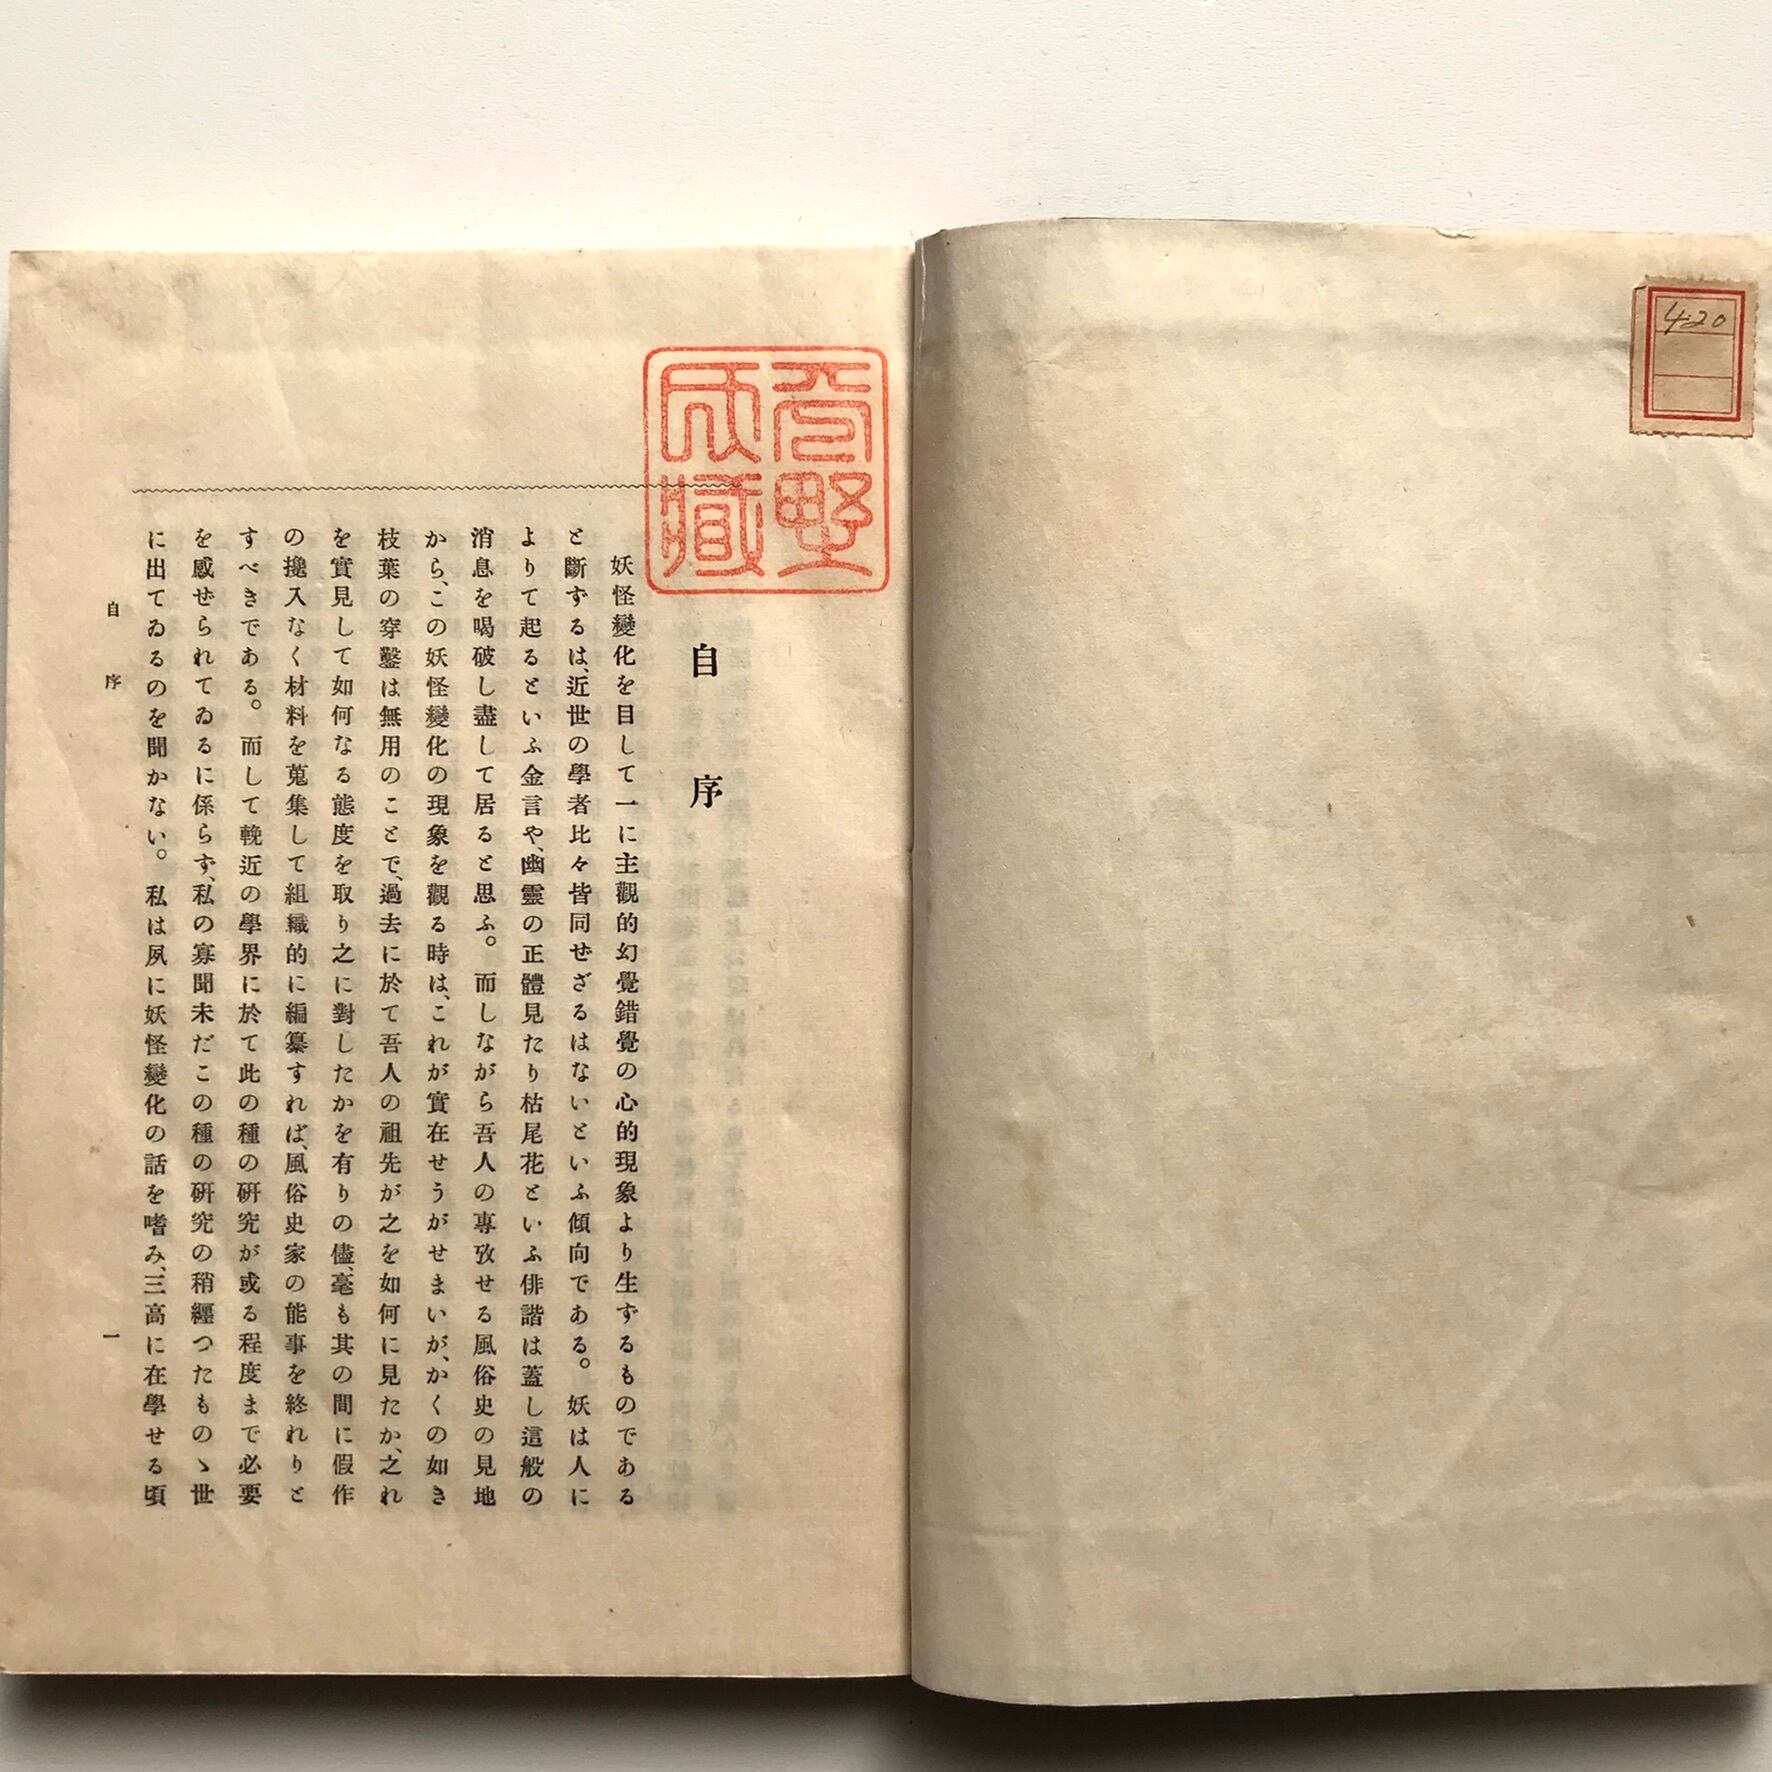 420
自序
妖怪變化を目して一に主觀的幻覺錯覺の心的現象より生ずるものである
と斷ずるは、近世の學者比々皆同ぜざるはないといふ傾向である。妖は人に
よりて起るといふ金言や、幽靈の正體見たり枯尾花といふ俳諧は蓋し這般の
消息を喝破し盡して居ると思ふ。而しながら吾人の專攷せる風俗史の見地
から、この妖怪變化の現象を觀る時は、これが實在せうがせまいが、かくの如き
枝葉の穿鑿は無用のことで、過去に於て吾人の祖先が之を如何に見たか、之れ
を實見して如何なる態度を取り之に對したかを有りの儘、毫も其の間に假作
の攙入なく材料を蒐集して組織的に編纂すれば、風俗史家の能事を終れりと
すべきである。而して輓近の學界に於て此の種の硏究が或る程度まで必要
を感ぜられてゐるに係らず、私の寡聞未だこの種の硏究の稍纒つたものゝ世
に出てゐるのを聞かない。私は夙に妖怪變化の話を嗜み、三高に在學せる頃
自序
一